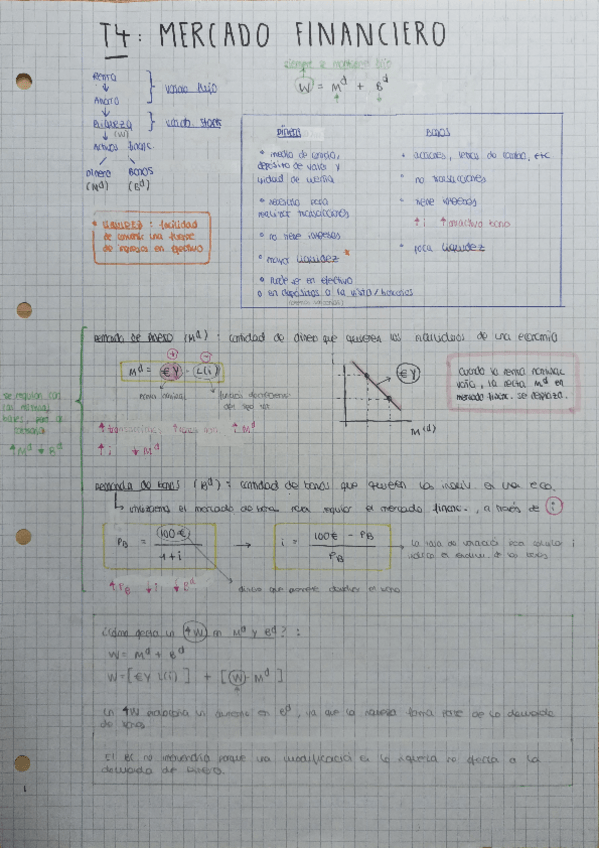 T4: MERCADO FINANCIERO
siempre se mantiene fijo
W = Mᵈ + Bᵈ
Renta
Ahorro
variab. flujo
Riqueza
(W)
variab. stock
Activos financ.
Dinero Bonos
(Mᵈ) (Bᵈ)
* LIQUIDEZ: facilidad
de convertir una fuente
de riqueza en efectivo
DINERO
• medio de cambio,
depósito de valor y
unidad de cuenta
• necesario para
realizar transacciones
• no tiene intereses
• mayor LIQUIDEZ *
• puede ser en efectivo
o en depósitos a la vista/bancarios
BONOS
• acciones, letras del tesoro, etc
• no transacciones
• tiene intereses
↑i ↑ atractivo bono
• poca LIQUIDEZ
Demanda de Dinero (Mᵈ): cantidad de dinero que quieren los individuos de una economía
Mᵈ = €Y · L(i)
+ −
renta nominal
función decreciente
del tipo int.
↑ transacciones ↑ Mᵈ
↑i ↓Mᵈ
€Y
M⁽ᵈ⁾
Cuando la renta nominal
varía, la recta Mᵈ en
mercado financ. se desplaza.
↑Mᵈ ↓Bᵈ
Demanda de bonos (Bᵈ): cantidad de bonos que quieren los indiv. en una eco.
utilizamos el mercado de bonos para regular el mercado financ., a través de i
P_B = 100€ / 1+i → i = 100€ − P_B / P_B
↑P_B ↓i ↓Bᵈ
dinero que promete devolver el bono
¿Cómo afecta un ↑W en Mᵈ y Bᵈ?:
W = Mᵈ + Bᵈ
W = [€Y L(i)] + [W − Mᵈ]
Un ↑W un aumento en Bᵈ, ya que la riqueza forma parte de la demanda
de bonos
El BC no intervendría porque una modificación en la riqueza no afecta a la
demanda de dinero.